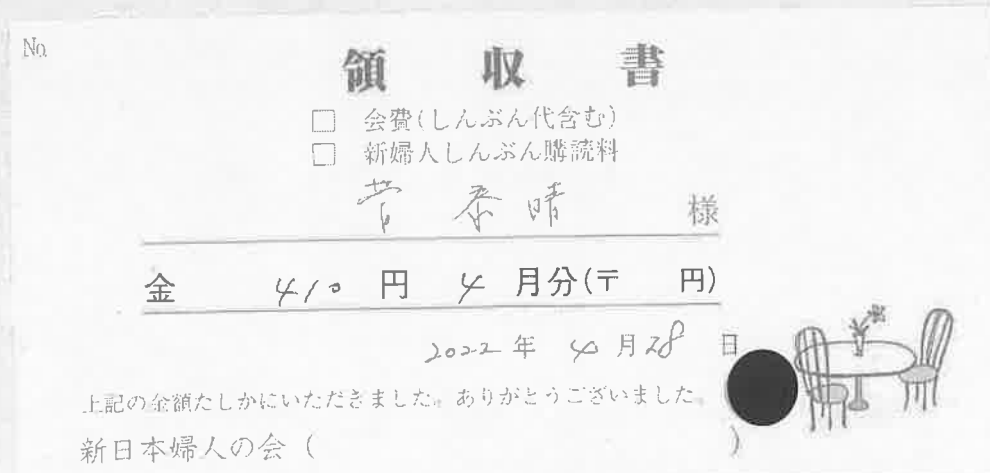 No.
領収書
□ 会費(しんぶん代含む)
□ 新婦人しんぶん購読料
菅 泰晴 様
金 410 円 4 月分(〒 円)
2022 年 4 月 28 日
上記の金額たしかにいただきました。ありがとうございました。
新日本婦人の会 ( )